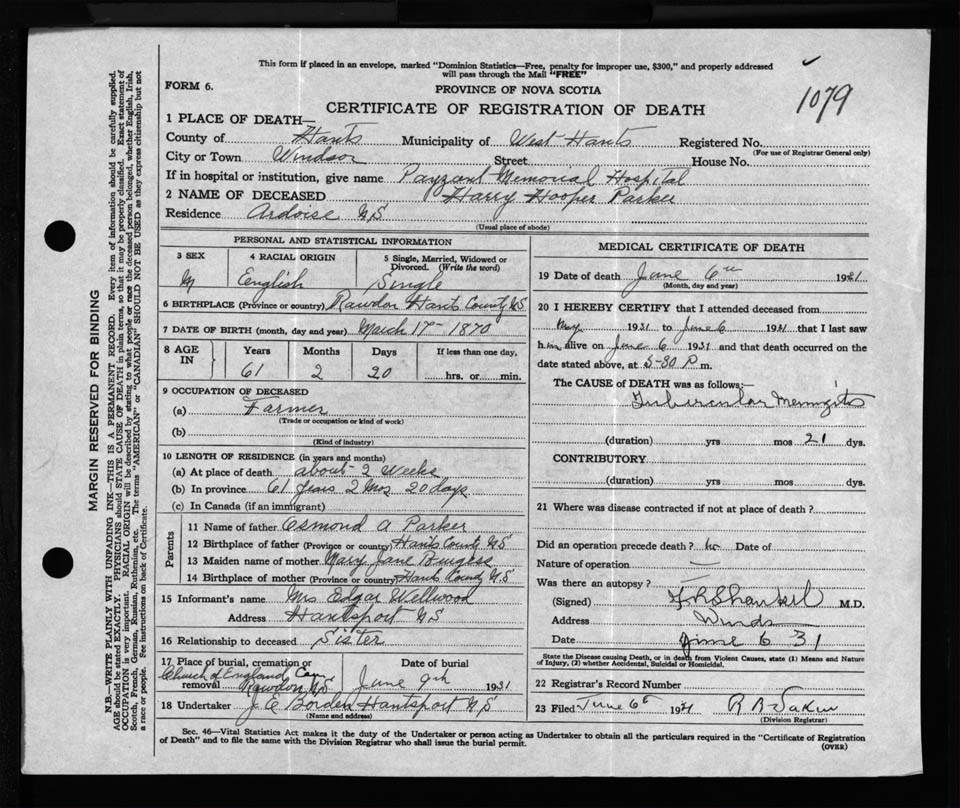 This form if placed in an envelope, marked "Dominion Statistics—Free, penalty for improper use, $300," and properly addressed
will pass through the Mail "FREE"
FORM 6.
PROVINCE OF NOVA SCOTIA
1079
CERTIFICATE OF REGISTRATION OF DEATH
1 PLACE OF DEATH—
County of Hants Municipality of West Hants Registered No.
(For use of Registrar General only)
City or Town Windsor Street House No.
If in hospital or institution, give name Payzant Memorial Hospital
2 NAME OF DECEASED Harry Hooper Parker
Residence Ardoise N.S
(Usual place of abode)
PERSONAL AND STATISTICAL INFORMATION
3 SEX 4 RACIAL ORIGIN 5 Single, Married, Widowed or Divorced. (Write the word)
M English Single
6 BIRTHPLACE (Province or country) Rawdon Hants County N.S
7 DATE OF BIRTH (month, day and year) March 17 - 1870
8 AGE IN Years Months Days If less than one day,
61 2 20 hrs. or min.
9 OCCUPATION OF DECEASED
(a) Farmer
(Trade or occupation or kind of work)
(b)
(Kind of industry)
10 LENGTH OF RESIDENCE (in years and months)
(a) At place of death about 2 Weeks
(b) In province 61 years 2 Mos 20 days
(c) In Canada (if an immigrant)
Parents
11 Name of father Osmond A Parker
12 Birthplace of father (Province or country) Hants County N.S
13 Maiden name of mother Mary Jane Burgess
14 Birthplace of mother (Province or country) Hants County N.S
15 Informant's name Mrs Edgar Wellwood
Address Hantsport N.S
16 Relationship to deceased Sister
17 Place of burial, cremation or removal Date of burial
Church of England Cem Rawdon N.S June 9th 1931
18 Undertaker J. E Borden Hantsport N.S
(Name and address)
MEDICAL CERTIFICATE OF DEATH
19 Date of death June 6th 1931
(Month, day and year)
20 I HEREBY CERTIFY that I attended deceased from
May 1931 to June 6 1931 that I last saw
him alive on June 6 1931 and that death occurred on the
date stated above, at 5-30 P m.
The CAUSE OF DEATH was as follows:—
Tubercular Meningitis
(duration) yrs mos 21 dys.
CONTRIBUTORY
(duration) yrs. mos. dys.
21 Where was disease contracted if not at place of death?
Did an operation precede death? No Date of
Nature of operation
Was there an autopsy?
(Signed) M.D.
Address Winds
Date June 6 31
State the Disease causing Death, or in death from Violent Causes, state (1) Means and Nature
of Injury, (2) whether Accidental, Suicidal or Homicidal.
22 Registrar's Record Number
23 Filed June 6th 1931 R B
(Division Registrar)
Sec. 46—Vital Statistics Act makes it the duty of the Undertaker or person acting as Undertaker to obtain all the particulars required in the "Certificate of Registration
of Death" and to file the same with the Division Registrar who shall issue the burial permit.
(OVER)
MARGIN RESERVED FOR BINDING
N.B.—WRITE PLAINLY WITH UNFADING INK—THIS IS A PERMANENT RECORD. Every item of information should be carefully supplied.
AGE should be stated EXACTLY. PHYSICIANS should STATE CAUSE OF DEATH in plain terms, so that it may be properly classified. Exact statement of
OCCUPATION is very important. RACIAL ORIGIN will be described by stating to what people or race the deceased person belonged, whether English, Irish,
Scotch, French, German, Russian, Ruthenian, etc. The terms "AMERICAN" or "CANADIAN" SHOULD NOT BE USED as they express citizenship but not
a race or people. See instructions on back of Certificate.